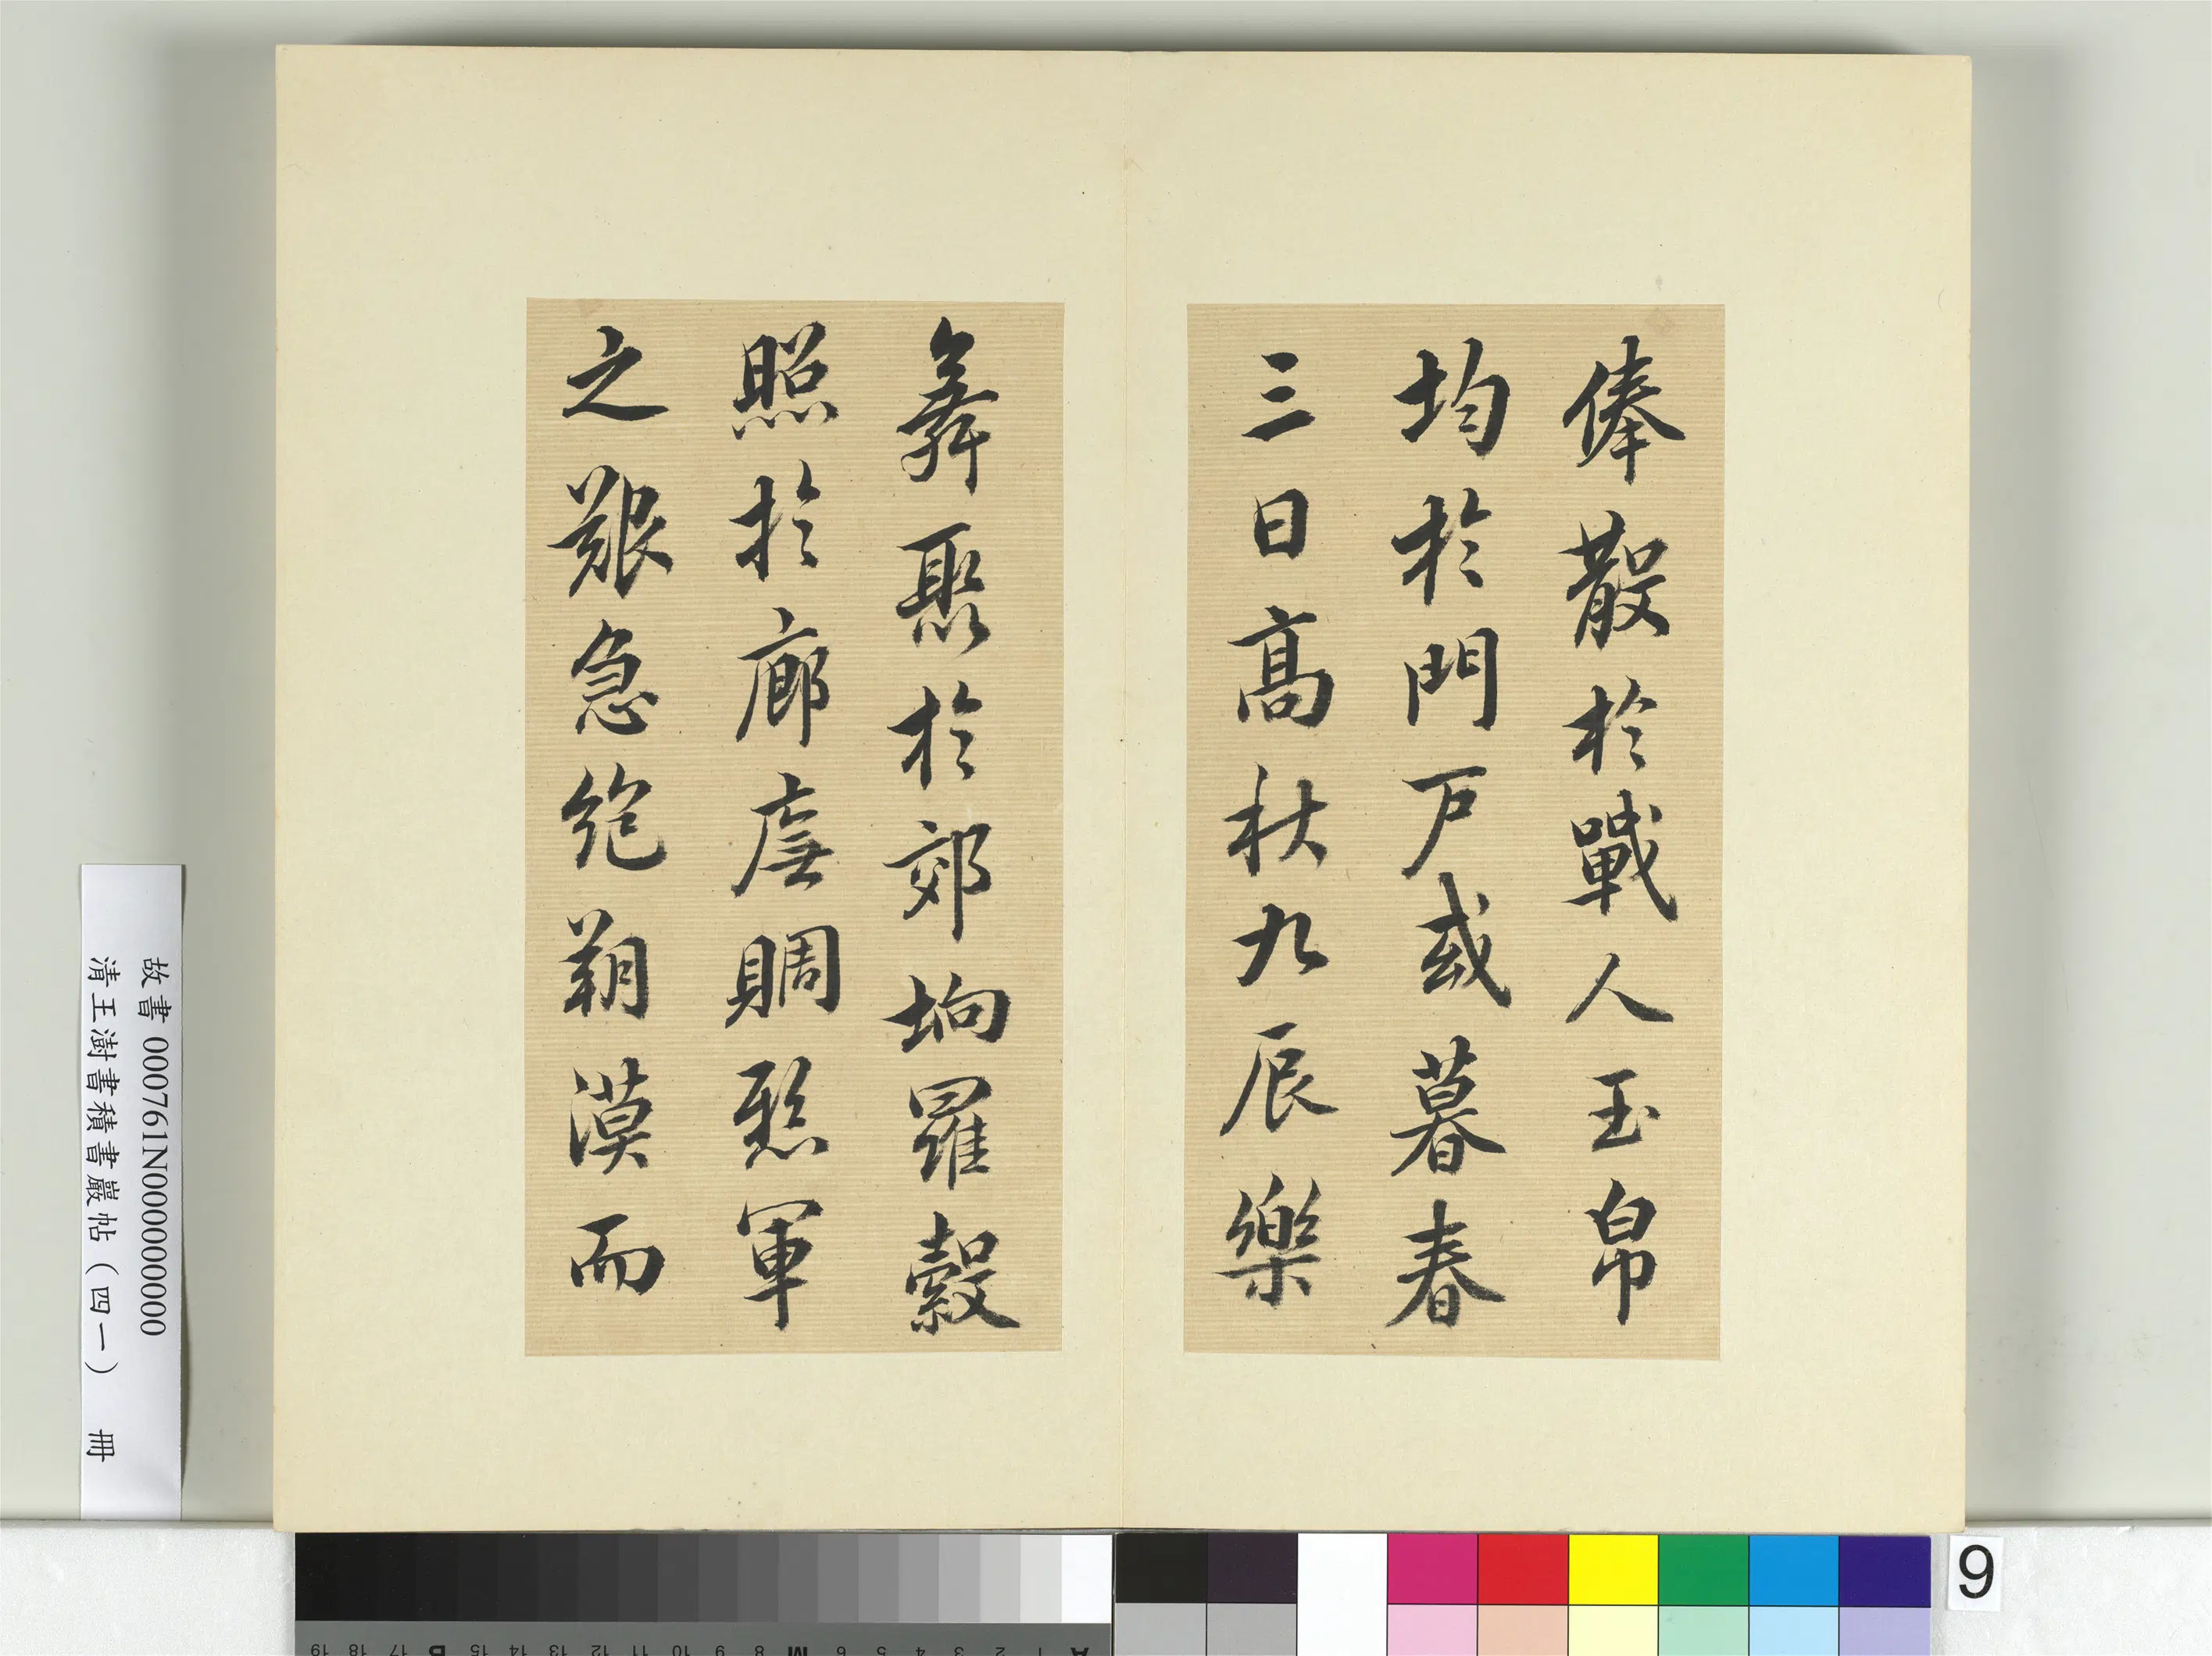 俸散於戰人玉帛
均於門戶或暮春
三日高秋九辰樂
舞聚於郊坰羅縠
照於廊廡賙懸軍
之艱急絕朔漠而
故書 000761N000000000
清王澍書積書巖帖（四一） 冊
9
19 18 17 B 15 14 13 12 11 10 9 8 M 6 5 4 3 2 1 A